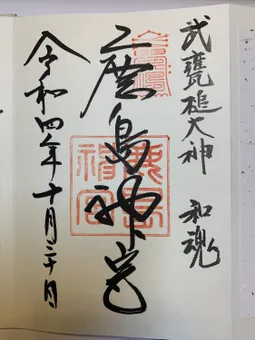 武甕槌大神 和魂
鹿島神宮
令和四年十月三十日